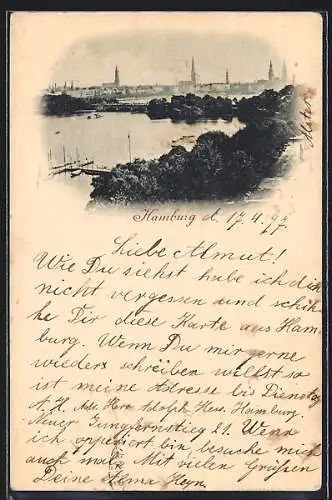 Alster
Hamburg d. 17.4.97
Liebe Almut!
Wie Du siehst habe ich dich
nicht vergessen und schik-
ke Dir diese Karte aus Ham-
burg. Wenn Du mir gerne
wieder schreiben willst so
ist meine Adresse bis Dienstag
A. H. Adr. Herr Adolph Hess. Hamburg.
Neuer Jungfernstieg 21. Wenn
ich bin besuche mich
auch mal. Mit vielen Grüßen
Deine Alma Heyn.